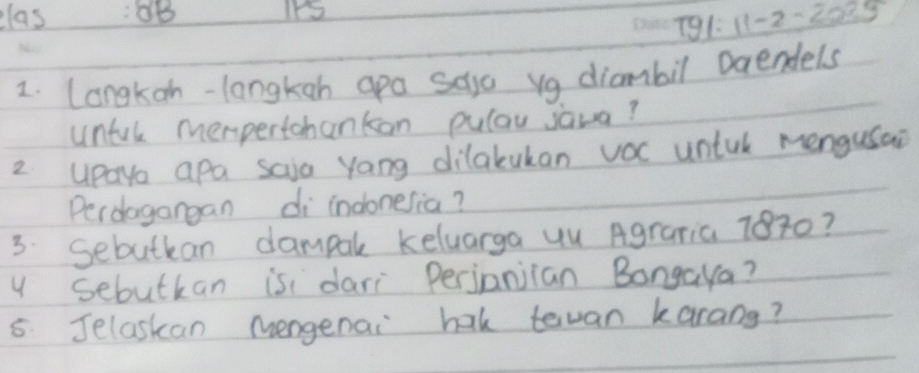 elas : 8B IPS Tgl: 11-2-2025
1. Langkah-langkah apa saja yg diambil Daendels
untuk mempertahankan pulau jawa?
2 upaya apa saja yang dilakukan VOC untuk mengusai
Perdagangan di indonesia?
3. Sebutkan dampak keluarga uu Agraria 1870?
4 Sebutkan isi dari Perjanjian Bongaya?
5. Jelaskan mengenai hak tawan karang?